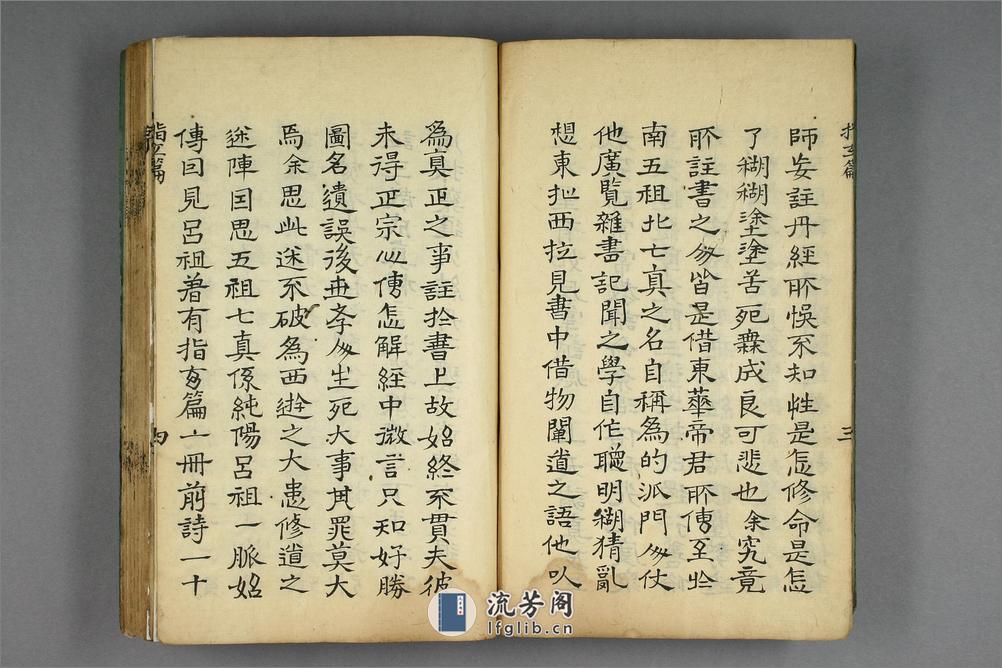 師妄註丹經所悞不知性是怎修命是怎
了糊糊塗塗苦死無成良可悲也余究竟
所註書之人皆是借東華帝君所傳至於
南五祖北七真之名自稱為的派門人仗
他廣覽雜書記聞之學自作聰明糊猜亂
想東扯西拉見書中借物闡道之語他以
為真正之事註於書上故始終不貫夫彼
未得正宗心傳怎解經中微言只知好勝
圖名遺誤後世學人生死大事其罪莫大
焉余思此迷不破為西遊之大患修道之
迷陣因思五祖七真係純陽呂祖一脈始
傳回見呂祖著有指玄篇一冊前詩一十
指玄篇
三
指玄篇
四
流芳阁
lfglib.cn